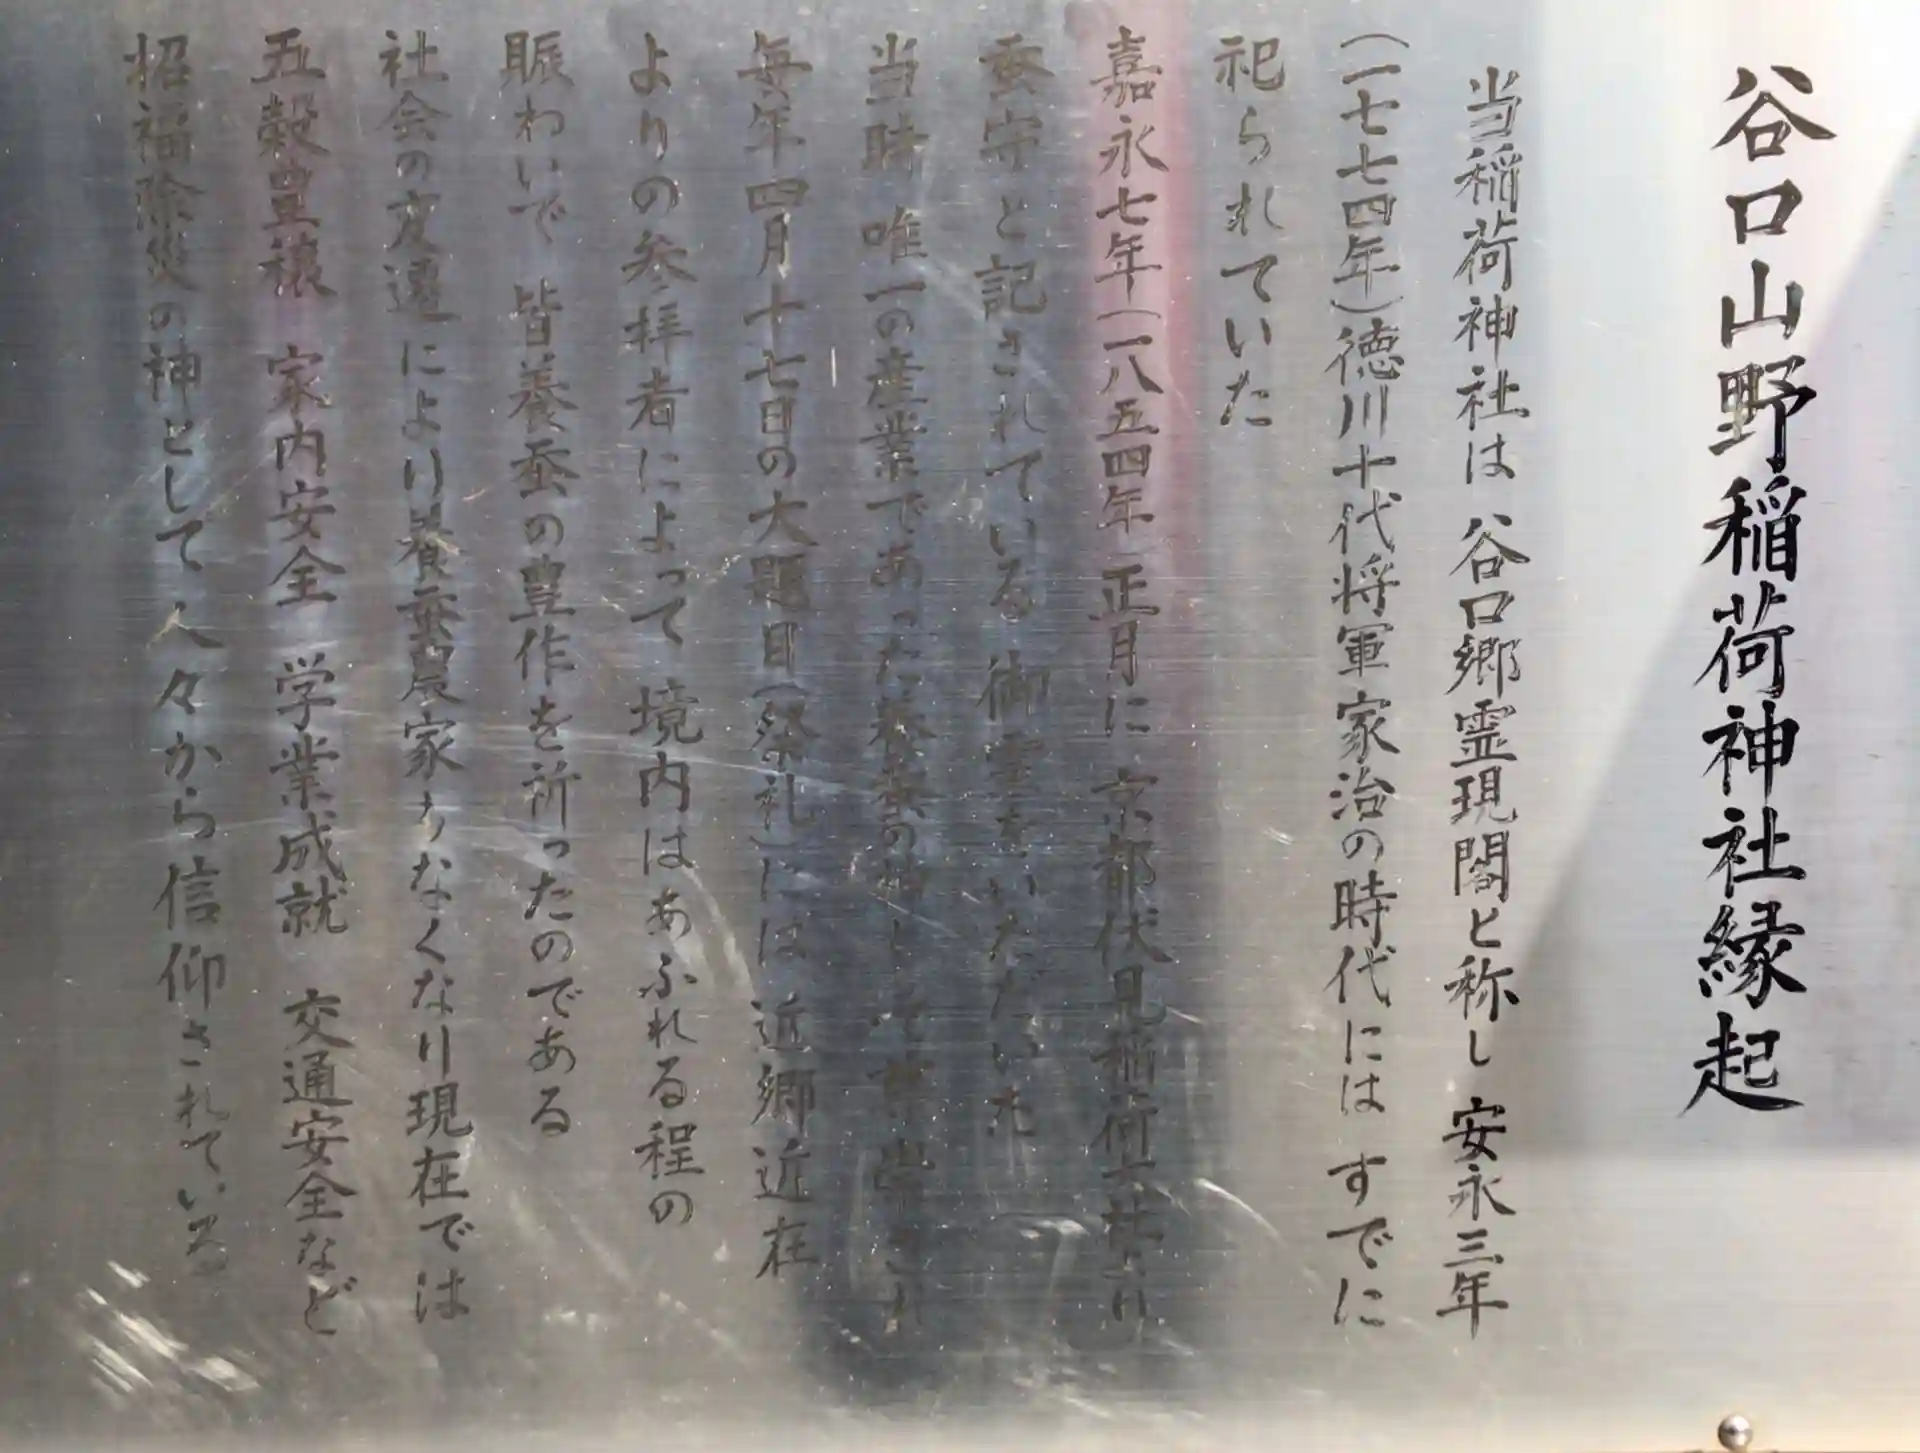 谷口山野稲荷神社縁起
当稲荷神社は 谷口郷霊現閣と称し 安永三年
(一七七四年)徳川十代将軍家治の時代には すでに
祀られていた
嘉永七年(一八五四年)正月に 京都伏見稲荷大社より
蚕守と記されている 御霊をいただいた
当時 唯一の産業であった養蚕の神として崇
毎年四月十七日の大題目(祭礼)には 近郷近在
よりの参拝者によって 境内はあふれる程の
賑わいで 皆養蚕の豊作を祈ったのである
社会の変遷により養蚕農家もなくなり現在では
五穀豊穣 家内安全 学業成就 交通安全など
招福除災の神として 人々から信仰されている